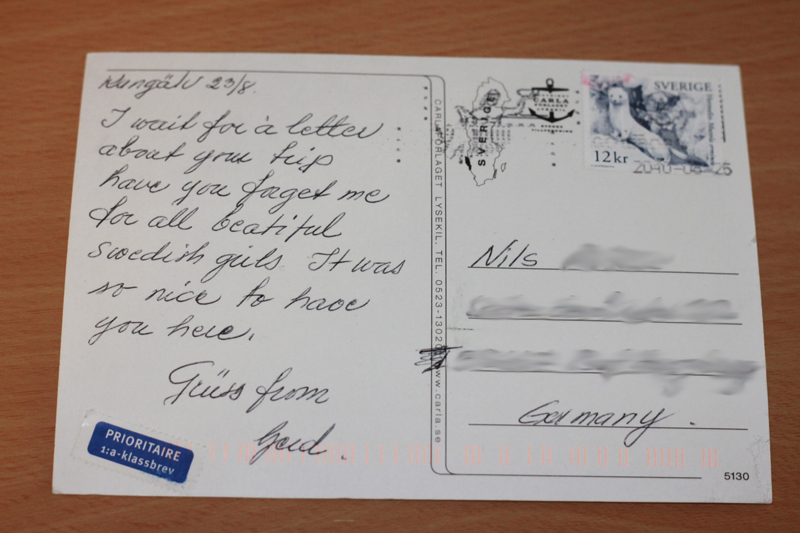 Kungälv 23/8
I wait for a letter
about your trip
have you forget me
for all beatiful
Swedish girls. It was
so nice to have
you here.
Grüss from
Gerd.
PRIORITAIRE
1:a-klassbrev
CARLA FÖRLAGET LYSEKIL, TEL. 0523-13020 www.carla.se
SVERIGE
CARLA
SVERIGE
12kr
Nils
Germany.
5130